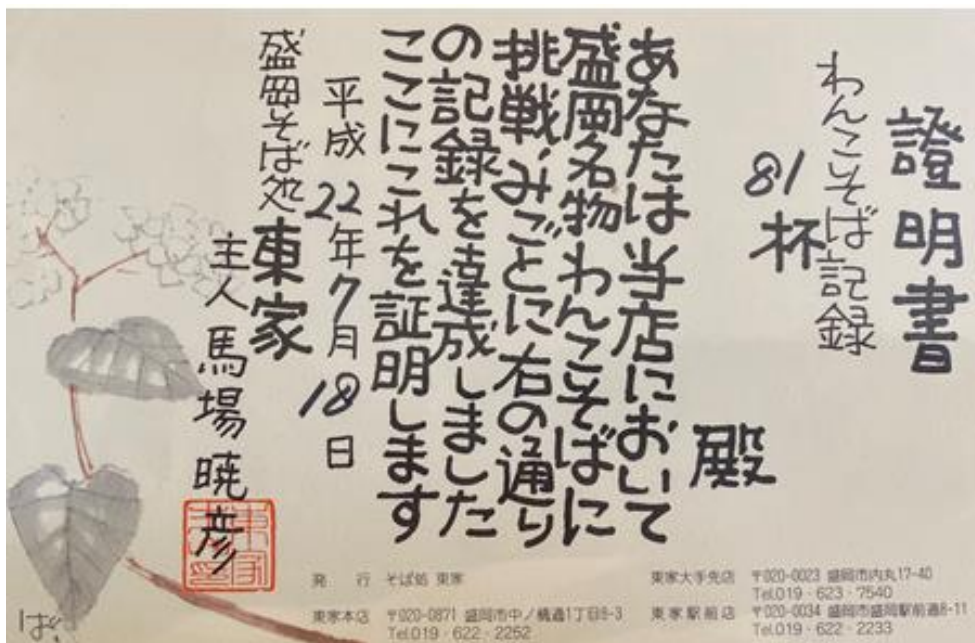 證明書
わんこそば記録
81杯
殿
あなたは当店において
盛岡名物わんこそばに
挑戦、みごとに右の通り
の記録を達成しました
ここにこれを証明します
平成22年7月18日
盛岡そば処東家
主人馬場暁彦
発 行 そば処 東家
東家本店 〒020-0871 盛岡市中ノ橋通1丁目8-3
Tel.019・622・2252
東家大手先店 〒020-0023 盛岡市内丸17-40
Tel.019・623・7540
東家駅前店 〒020-0034 盛岡市盛岡駅前通8-11
Tel.019・622・2233